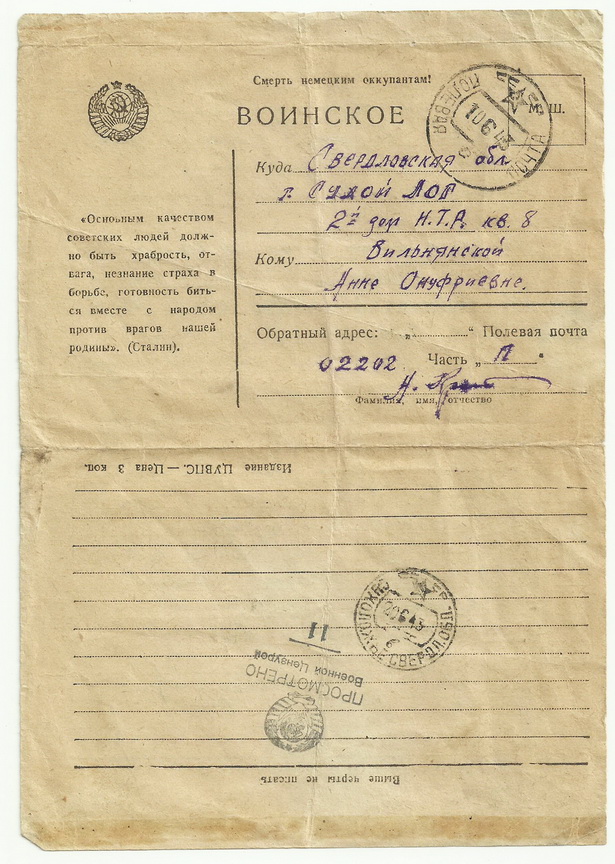 Смерть немецким оккупантам!
ВОИНСКОЕ
М. Ш.
ПОЛЕВАЯ
ПОЧТА
10 6 43
Куда Свердловская обл.
г. Сухой Лог
2й дом Н.Т.Р. кв. 8
Кому Вильнянской
Анне Онуфриевне.
«Основным качеством
советских людей долж-
но быть храбрость, от-
вага, незнание страха в
борьбе, готовность бить-
ся вместе с народом
против врагов нашей
родины». (Сталин).
Обратный адрес: „ “ Полевая почта
02202 Часть „П“
Фамилия, имя, отчество
Издание ЦУВПС. — Цена 3 коп.
11
ПРОСМОТРЕНО
Военной Цензурой
Выше черты не писать